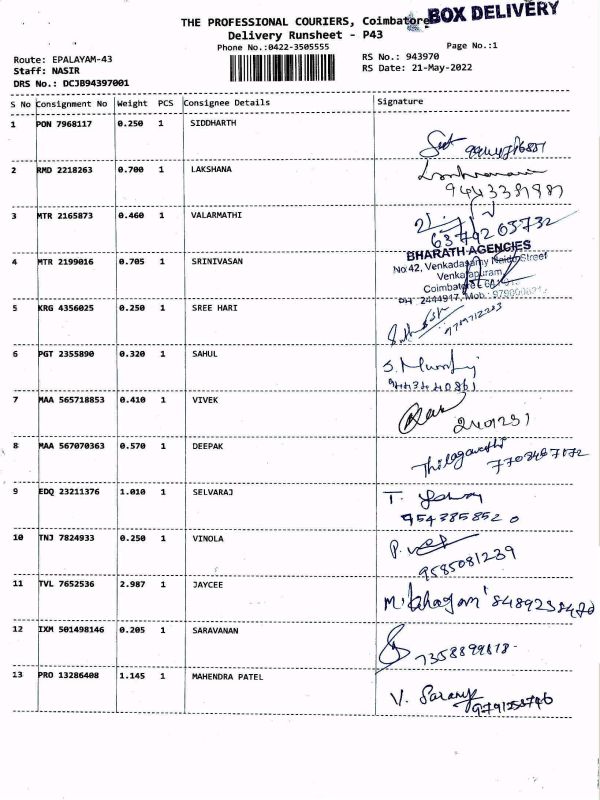 BOX DELIVERY
THE PROFESSIONAL COURIERS, Coimbatore
Delivery Runsheet - P43
Phone No.:0422-3505555
Page No.:1
Route: EPALAYAM-43
RS No.: 943970
Staff: NASIR
RS Date: 21-May-2022
DRS No.: DCJB94397001
S No Consignment No Weight PCS Consignee Details Signature
1 PON 7968117 0.250 1 SIDDHARTH
2 RMD 2218263 0.700 1 LAKSHANA
9443381987
3 MTR 2165873 0.460 1 VALARMATHI
6379265732
4 MTR 2199016 0.705 1 SRINIVASAN
BHARATH AGENCIES
No:42, Venkadasamy Naidu Street
Venkatapuram,
Coimbatore
PH : 2444917, Mob :
5 KRG 4356025 0.250 1 SREE HARI
6 PGT 2355890 0.320 1 SAHUL
S. Murthy
7 MAA 565718853 0.410 1 VIVEK
2401251
8 MAA 567070363 0.570 1 DEEPAK
Thilagavathi
9 EDQ 23211376 1.010 1 SELVARAJ
9543858520
10 TNJ 7824933 0.250 1 VINOLA
9585081239
11 TVL 7652536 2.987 1 JAYCEE
12 IXM 501498146 0.205 1 SARAVANAN
13 PRO 13286408 1.145 1 MAHENDRA PATEL